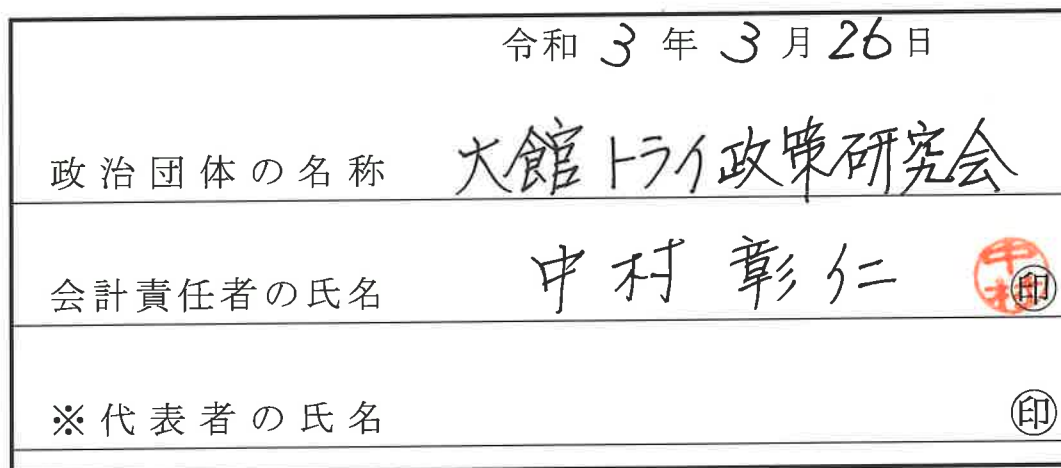 令和 3 年 3 月 26 日
政治団体の名称 大館トライ政策研究会
会計責任者の氏名 中村 彰仁 中村 ㊞
※代表者の氏名 ㊞